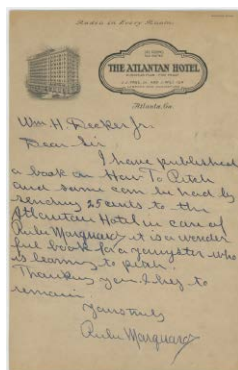 Radio in Every Room
THE ATLANTAN HOTEL
Atlanta, Ga.
Wm H. Decker Jr.
Dear Sir
I have published
a book on How To Pitch
and same can be had by
sending 25 cents to the
Atlantan Hotel in care of
Rube Marquard it is a wonder
ful book for a youngster who
is learning to pitch.
Thanking you I beg to
remain
Yours truly
Rube Marquard